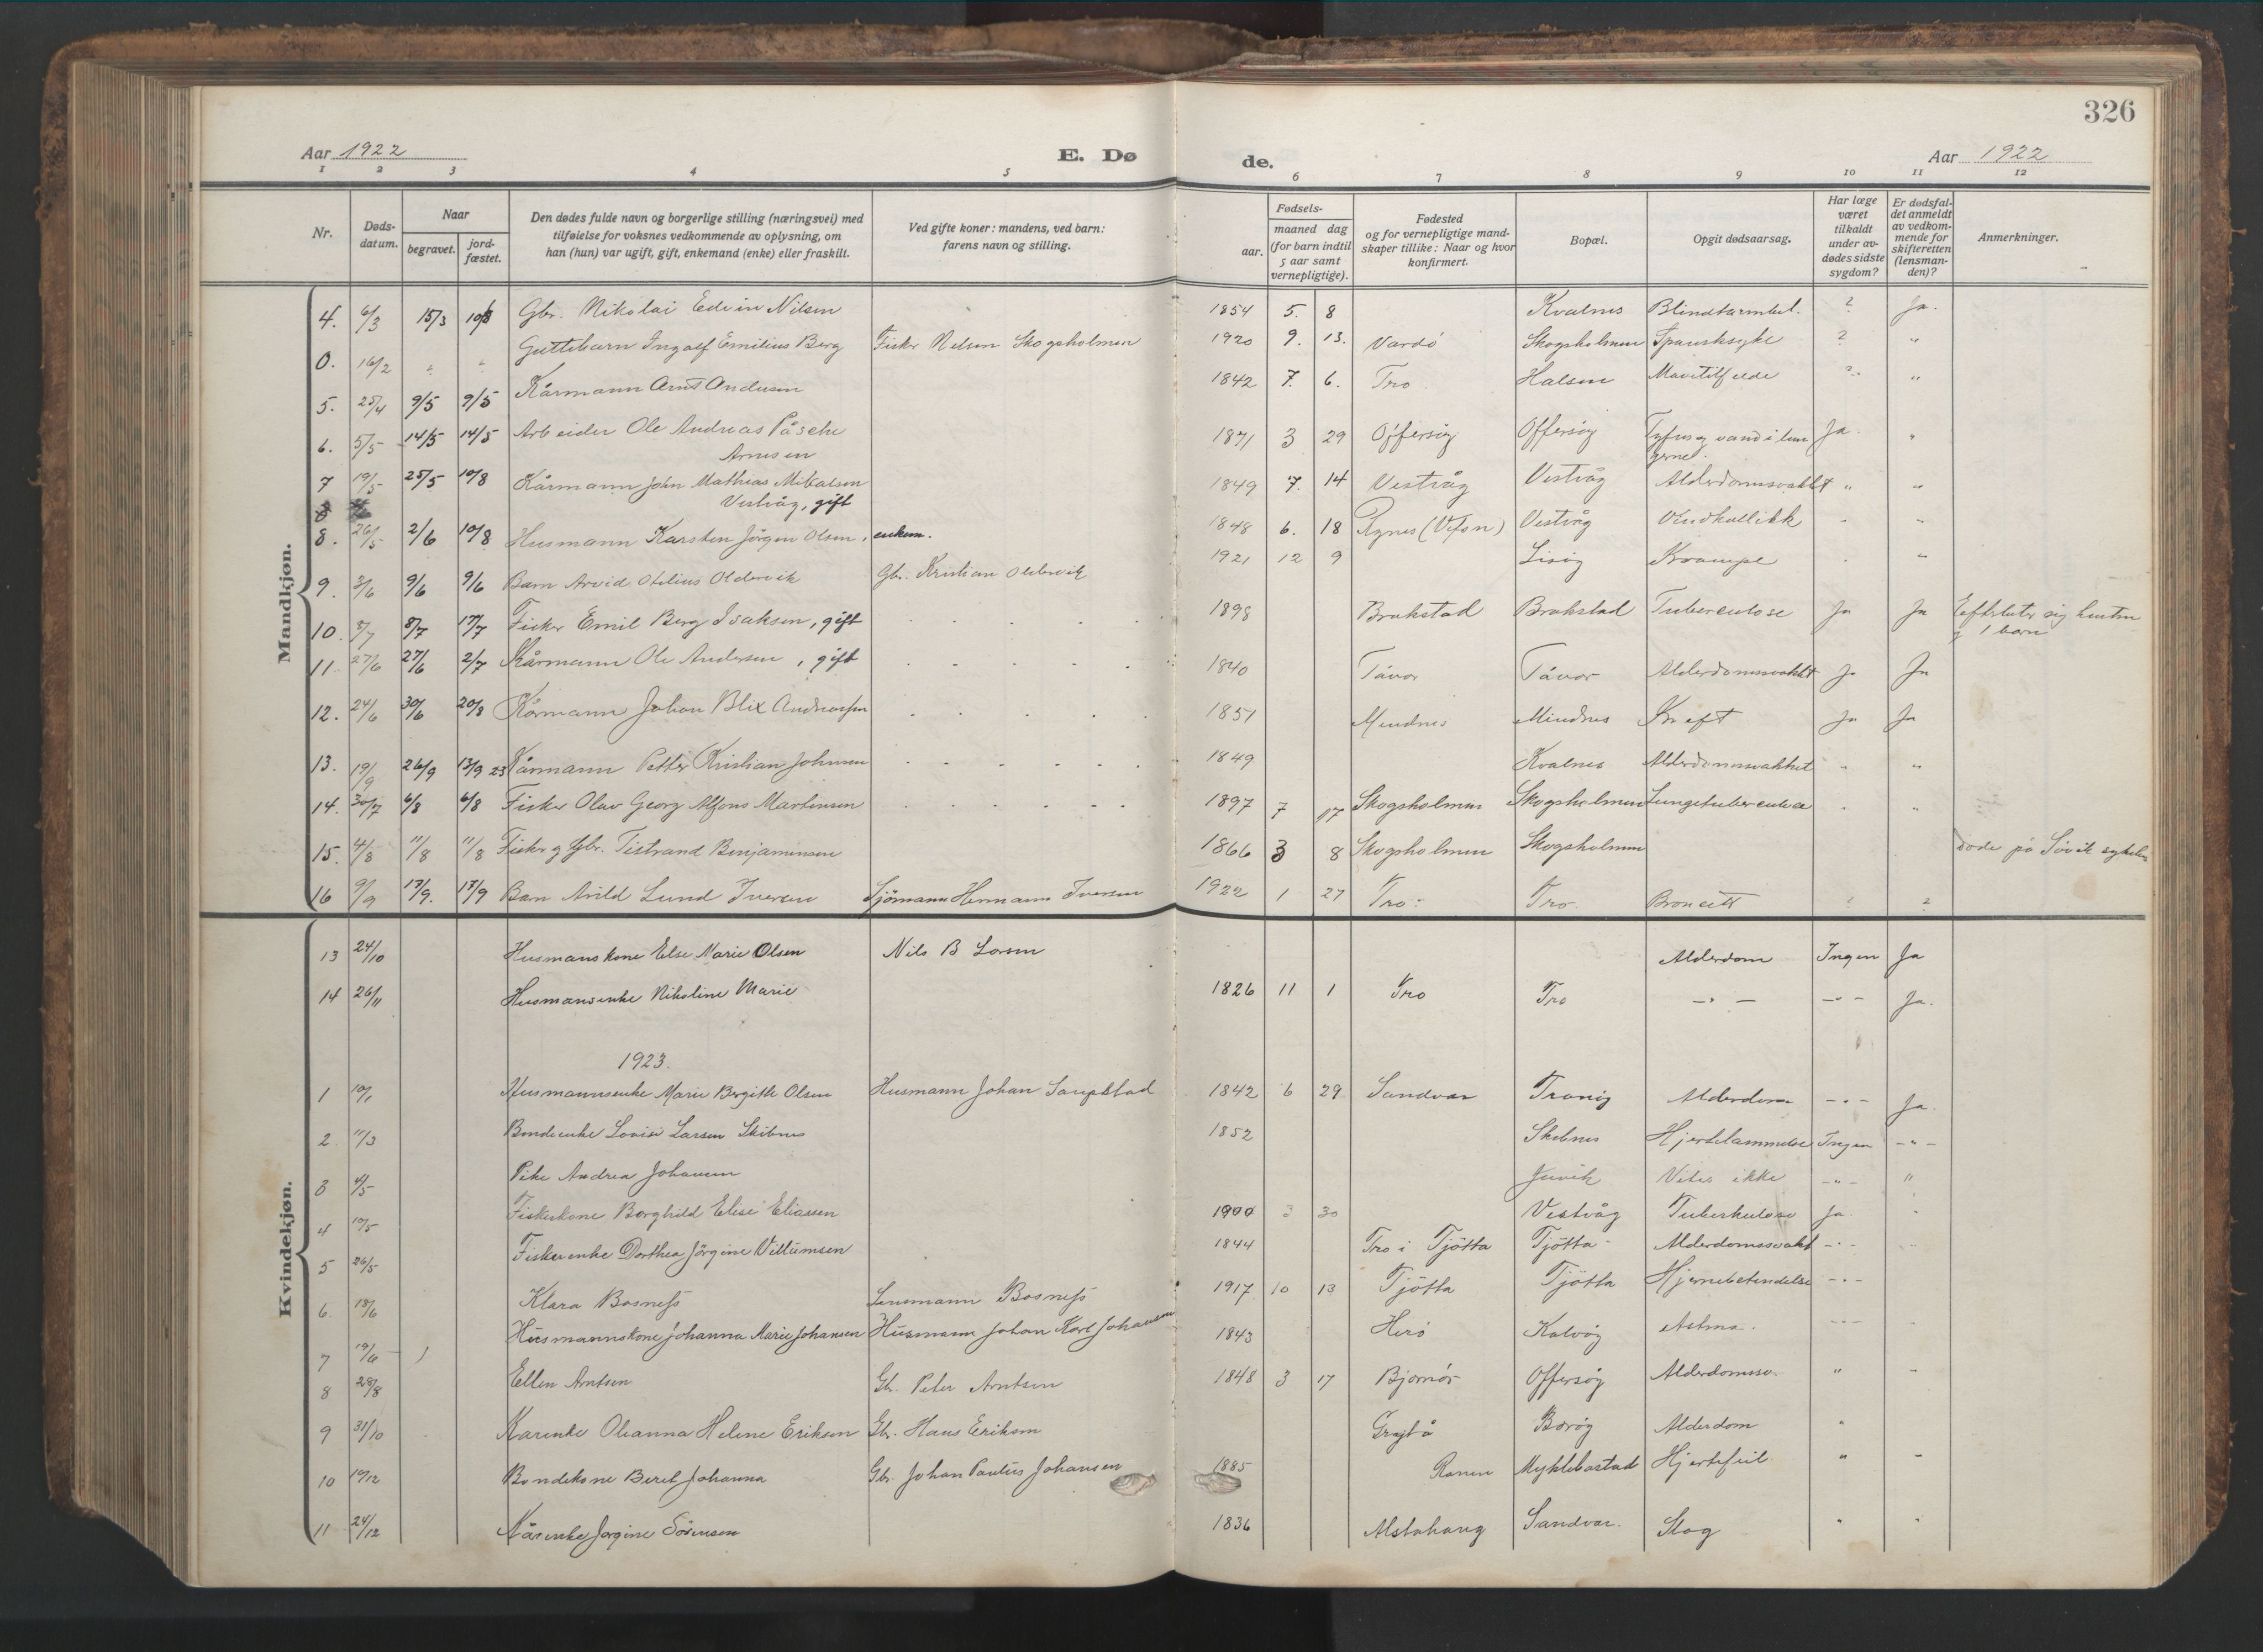 326
Aar 1922
E. Dø
de.
Aar 1922
1 2 3 4 5 6 7 8 9 10 11 12
Nr.
Døds-
datum.
Naar
begravet.
jord-
fæstet.
Den dødes fulde navn og borgerlige stilling (næringsvei) med
tilføielse for voksnes vedkommende av oplysning, om
han (hun) var ugift, gift, enkemand (enke) eller fraskilt.
Ved gifte koner: mandens, ved barn:
farens navn og stilling.
Fødsels-
aar.
maaned dag
(for barn indtil
5 aar samt
vernepligtige).
Fødested
og for vernepligtige mand-
skaper tillike: Naar og hvor
konfirmert.
Bopæl.
Opgit dødsaarsag.
Har læge
været
tilkaldt
under av-
dødes sidste
sygdom?
Er dødsfal-
det anmeldt
av vedkom-
mende for
skifteretten
(lensman-
den)?
Anmerkninger.
Mandkjøn.
4. 6/3 15/3 10/8 Gbr. Nikolai Edvin Nilsen 1854 5. 8 Kvalnes Blindtarmbet. ? Ja.
0. 16/2 " " Guttebarn Ingolf Emilius Berg Fisker Nelson Skogsholmen 1920 9. 13. Vardö Skogsholmen Spansksyke ? "
5. 25/4 9/5 9/5 Kårmann Arnt Andersen 1842 7. 6. Tro Halsen Mavetilfelde ? "
6. 5/5 14/5 14/5 Arbeider Ole Andreas Påsche
Arnesen 1871 3 29 Offersöy Offersöy Tyfus og vand i lun
gerne. Ja. "
7 19/5 25/5 10/8 Kårmann John Mathias Mikalsen
Vestvåg, gift 1849 7. 14 Vestvåg Vestvåg Alderdomssvakhet " "
8. 26/5 2/6 10/8 Husmann Karsten Jörgen Olsen, enkem. 1848 6. 18 Rynes (Vefsn) Vestvåg Vindkollikk " "
9. 3/6 9/6 9/6 Barn Arvid Otelius Oldervik Gbr. Kristian Oldervik 1921 12 9 Lisöy Krampe "
10. 8/7 8/7 17/7 Fisker Emil Berg Isaksen, gift 1898 Brakstad Brakstad Tuberculose Ja Ja Efterlater sig hustru
og 1 barn
11 27/6 27/6 2/7 Kårmann Ole Andersen, gift 1840 Tåvær Tåvær Alderdomssvakhet Ja Ja
12. 24/6 30/6 20/8 Kårmann Johan Blix Andreassen 1851 Mindnes Mindnes Kreft Ja Ja
13. 19/9 26/9 13/9 23 Kårmann Petter Kristian Johnsen 1849 Kvalnes Alderdomssvakhet " "
14. 30/7 6/8 6/8 Fisker Olav Georg Alfons Martinsen 1897 7 17 Skogsholmen Skogsholmen Lungetuberculose " "
15. 4/8 11/8 11/8 Fisker og Gbr. Tistrand Benjaminsen 1866 3 8 Skogsholmen Skogsholmen döde på Sövik sykehus
16 9/9 17/9. 17/9 Barn Arild Lund Iversen Sjömann Hermann Iversen 1922 1 27 Tro. Tro. Broncitt ? ?
Kvindekjøn.
13 24/10 Husmanskone Else Marie Olsen Nils B Larsen Alderdom Ingen Ja
14 26/11 Husmansenke Nikoline Marie 1826 11 1 Tro Tro - " - - " - Ja.
1923.
1 10/1 Husmannsenke Marie Bergitte Olsen Husmann Johan Saupstad 1842 6 29 Sandvær Tranöy Alderdom - " - Ja.
2 11/3 Bondeenke Lovise Larsen Skibnes 1852 Skibnes Hjertelammelse Ingen - " -
3 4/5 Pike Andrea Johansen Juvik Vites ikke - " - "
4 10/5 Fiskerkone Borghild Elise Eliassen 1900 3 30 Vestvåg Tuberkulose Ja. "
5 26/5 Fiskerenke Dorthea Jörgine Villumsen 1844 Tro i Tjötta Tjötta Alderdomssvakh - " - "
6 18/6 Klara Bosness Lensmann Bosness 1917 10 13 Tjötta Tjötta Hjernebetendelse - " -
7 19/6 Husmannskone Johanna Marie Johansen Husmann Johan Karl Johansen 1843 Herö Kalvöy Astma. - - - "
8 28/8 Ellen Arntsen Gb. Peter Arntsen 1848 3 17 Bjornör Offersöy Alderdomssv. " "
9 31/10 Karenke Oleanna Helene Eriksen Gb. Hans Eriksen Grytå Boröy Alderdom "
10 19/12 Bondekone Beret Johanna Gb. Johan Paulus Johansen 1885 Ranen Myklebostad Hjertefeil " "
11 24/12 Kårenke Jorgine Sörensen 1836 Alstahaug Sandvær. Slag " "